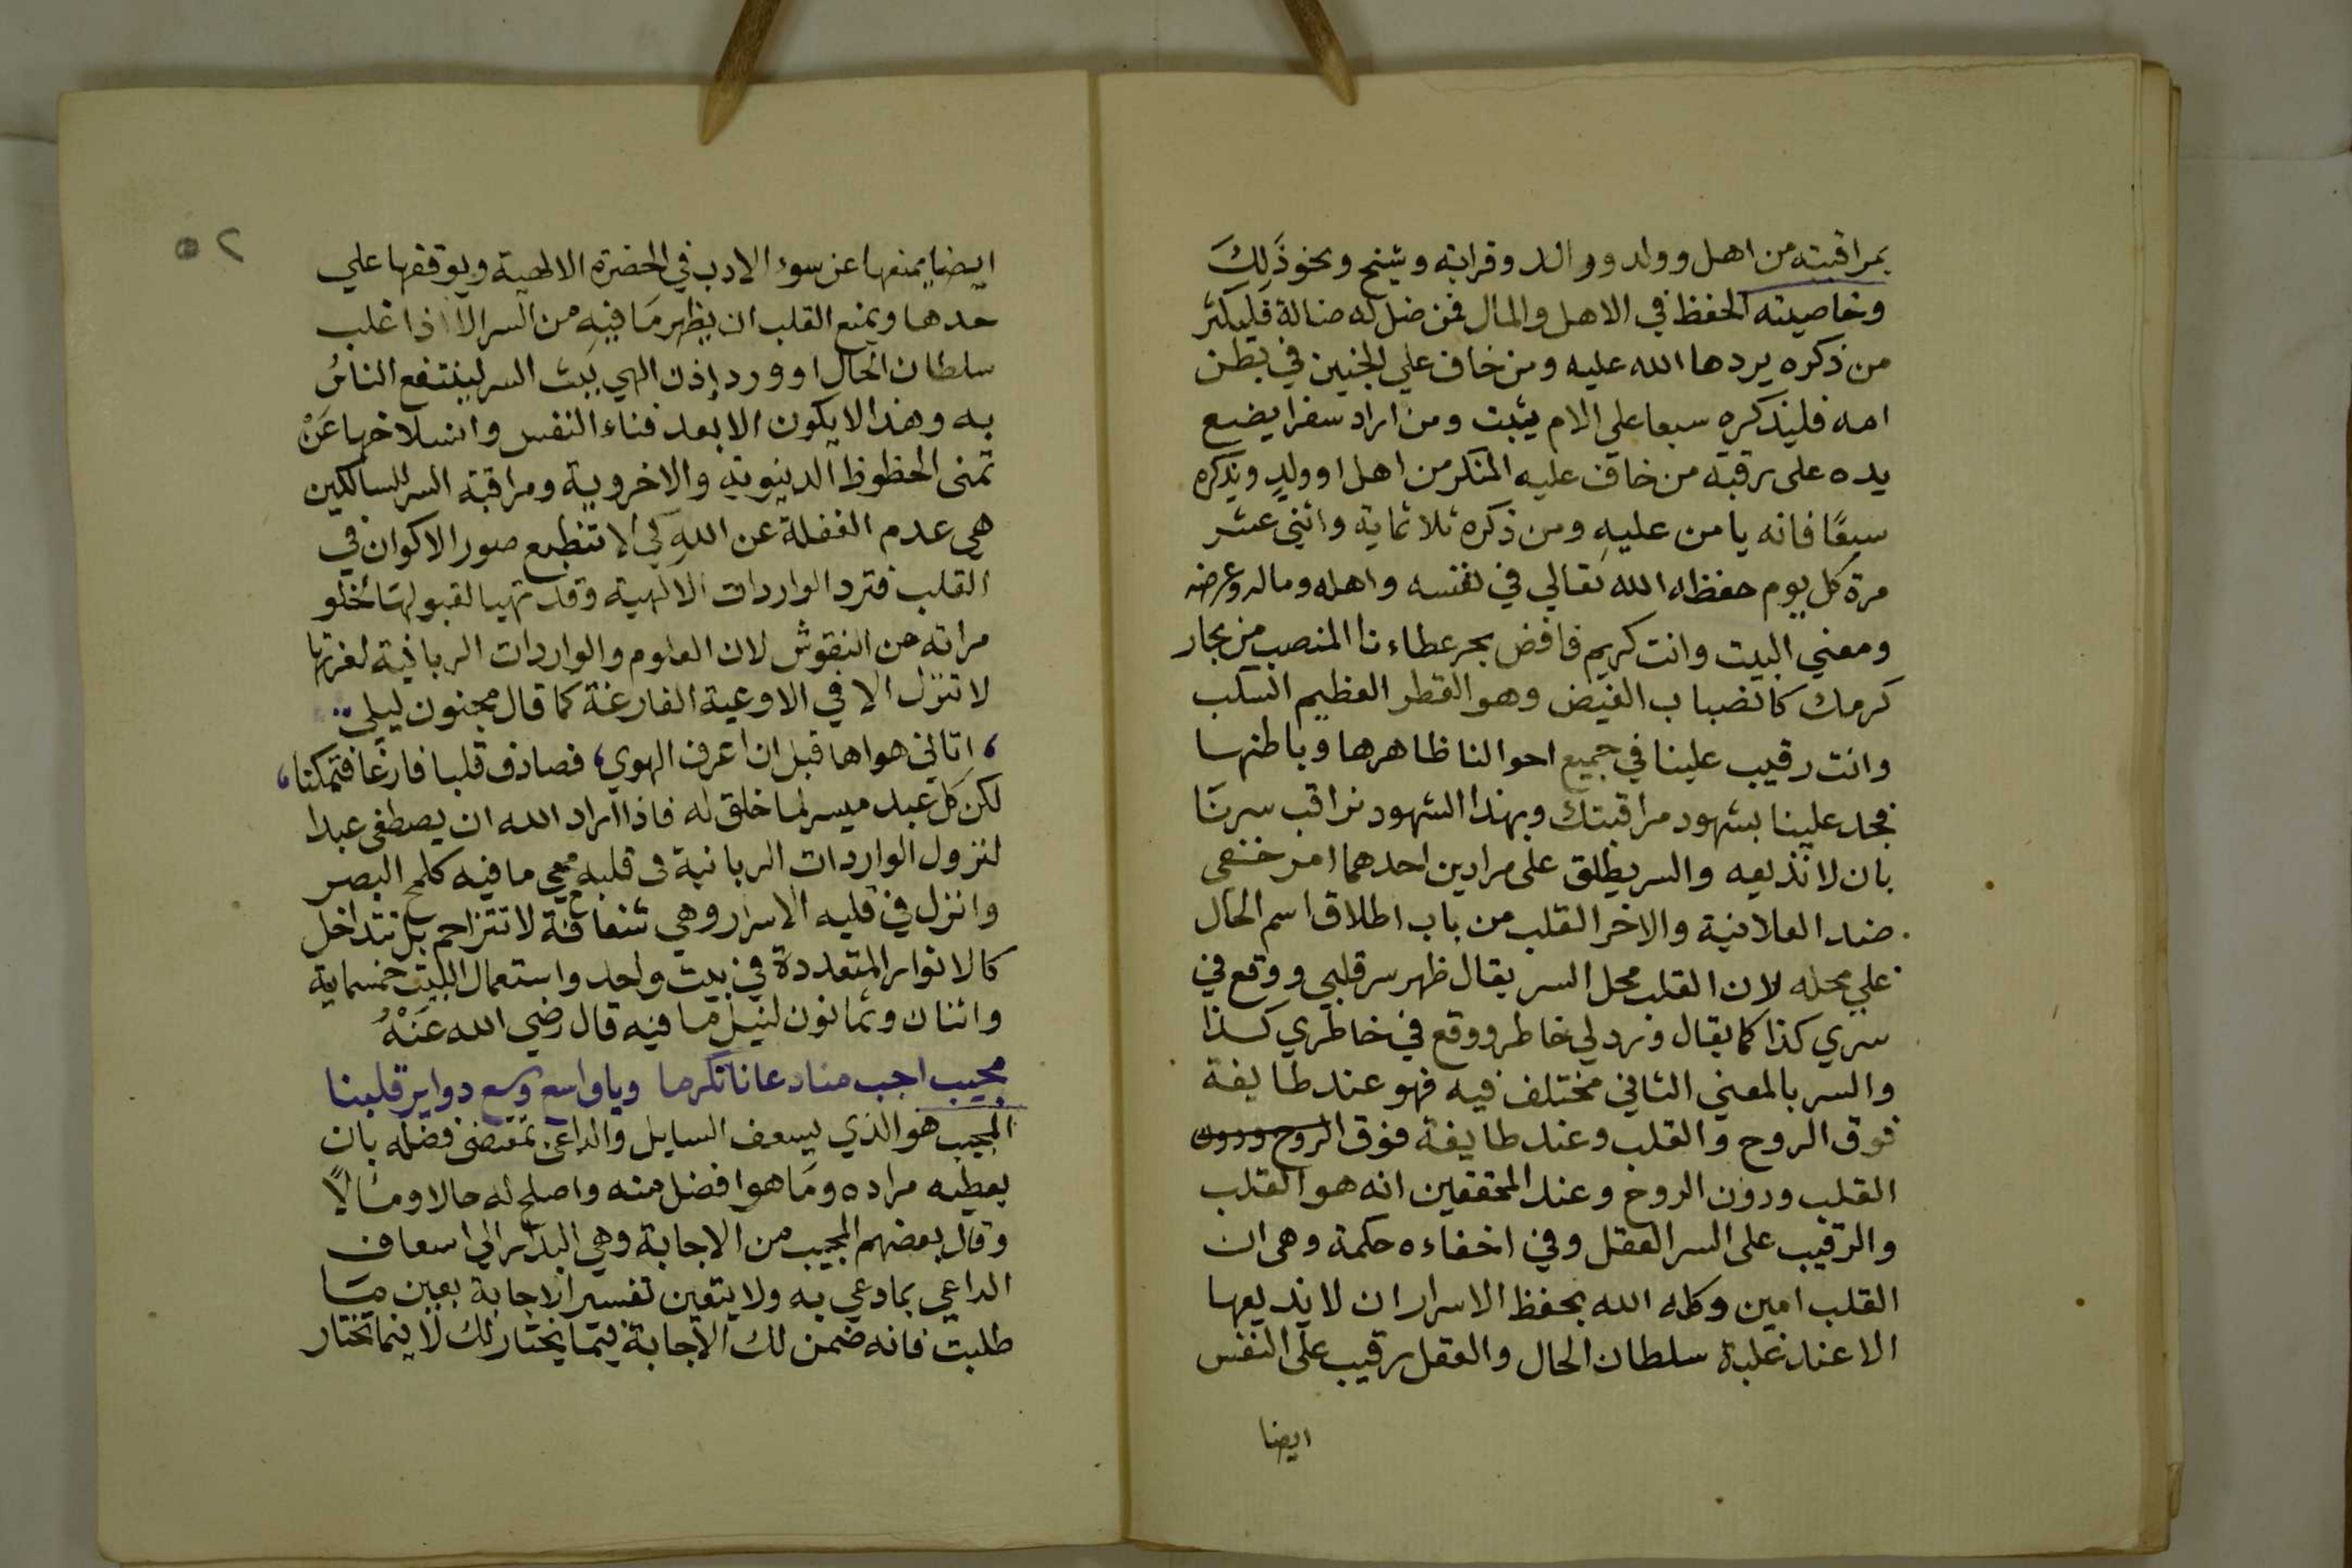 بمراقبته من اهل وولد ووالد وقرابة وشيخ ونحو ذَلِكَ
وخاصيته الحفظ في الاهل والمال فمن ضل له ضالة فليكثر
من ذكره يردها الله عليه ومن خاف علي الجنين في بطن
امه فليذكره سبعا على الام يثبت ومن اراد سفرا يضع
يده على رقبة من خاف عليه المنكر من اهل او ولدٍ ويذكره
سبعًا فانه يامن عليهِ ومن ذكره ثلاثماية واثنى عشر
مرة كل يوم حفظه الله تعالي في نفسه واهله وماله وعرضه
ومعني البيت وانت كريم فافض بحر عطاءنا المنصب من بحار
كرمك كانضباب الفيض وهو القطر العظيم السكب
وانت رقيب علينا في جميع احوالنا ظاهرها وباطنها
فجد علينا بشهود مراقبتك وبهذا الشهود نراقب سرنا
بان لا نذيعه والسر يطلق على مرادين احدهما امر خفى
ضد العلانية والاخر القلب من باب اطلاق اسم الحال
علي محله لان القلب محل السر يقال ظهر سر قلبي ووقع في
سري كذا كما يقال ورد لي خاطر ووقع في خاطري كذا
والسر بالمعني الثاني مختلف فيه فهو عند طايفة
فوق الروح والقلب وعند طايفة فوق الروح ودون
القلب ودون الروح وعند المحققين انه هو القلب
والرقيب على السر العقل وفي اخفاءه حكمة وهى ان
القلب امين وكله الله بحفظ الاسرار ان لا يذيعها
الا عند غلبة سلطان الحال والعقل رقيب على النفس
ايضا
٥٢
ايضا يمنعها عن سوء الادب في الحضرة الالهية ويوقفها علي
حدها ويمنع القلب ان يظهر مَا فيهِ من السر الا اذا غلب
سلطان الحال او ورد إذن الهي ببث السر لينتفع الناسُ
به وهذا لا يكون الا بعد فناء النفس وانسلاخها عَنْ
تمنى الحظوظ الدنيويةِ والاخروية ومراقبة السر للسالكين
هي عدم الغفلة عن اللهِ كي لا تنطبع صور الاكوان في
القلب فترد الواردات الالهية وقد تهيا لقبولها لخلو
مراته من النقوش لان العلوم والواردات الربانية لعزتها
لا تنزل الا في الاوعية الفارغة كما قال مجنون ليلي
، اتاني هواها قبل ان اعرف الهوي، فصادف قلبا فارغا فتمكنا،
لكن كل عبد ميسر لما خلق له فاذا اراد الله ان يصطفى عبدا
لنزول الواردات الربانية فى قلبه محي ما فيه كلمح البصر
وانزل في قلبه الاسرار وهي شفافة لا تتزاحم بل تتداخل
كالانوار المتعددة في بيت واحد واستعمال البيت خمسماية
واثنان وثمانون لنيل ما فيه قال رضي الله عَنْهُ
مجيب اجب مناد عانا تكرما وياواسع وسع دواير قلبنا
المجيب هو الذي يسعف السايل والداعى بمقتضى فضله بان
يعطيه مراده ومَا هو افضل منه واصلح له حالا ومآلًا
وقال بعضهم المجيب من الاجابة وهي البدار الي اسعاف
الداعي بما دعي به ولا يتعين تفسير الاجابة بعين مَا
طلبت فانه ضمن لك الاجابة فيما يختار لك لا فيما تختار